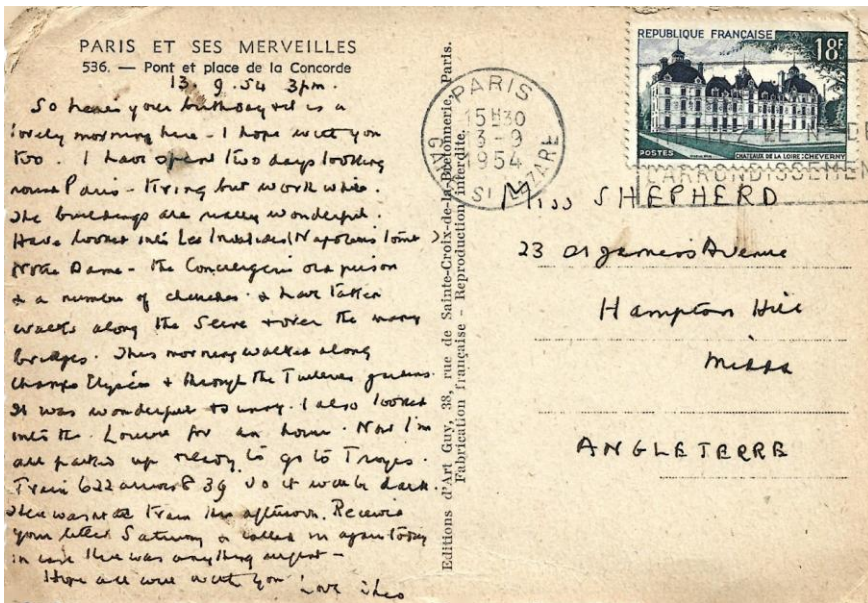 PARIS ET SES MERVEILLES
536. — Pont et place de la Concorde
13. 9. 54 3pm.
So here's your birthday & it is a
lovely morning here - I hope with you
too. I have spent two days looking
round Paris - tiring but worth while.
The buildings are really wonderful.
Have looked into Les Invalides (Napoleons Tomb)
Notre Dame - the Conciergerie old prison
& a number of churches & have taken
walks along the Seine & over the many
bridges. This morning walked along
Champs Elysées & through the Tuileries gardens.
It was wonderful & sunny. I also looked
into the Louvre for an hour. Now I'm
all packed up ready to go to Troyes.
Train 6.22 arrives 8 39 so it will be dark.
There was no train this afternoon. Received
your letter Saturday & called in again today
in case there was anything urgent -
Hope all well with you Love
Editions d'Art Guy, 38, rue de Sainte-Croix-de-la-Bretonnerie, Paris.
Fabrication française - Reproduction interdite.
PARIS
15H30
13-9
1954
GARE St LAZARE
REPUBLIQUE FRANÇAISE
18F
POSTES
CHATEAUX DE LA LOIRE: CHEVERNY
ARRONDISSEMEN
Miss SHEPHERD
23 Avenue
Hampton Hill
Middx
ANGLETERRE